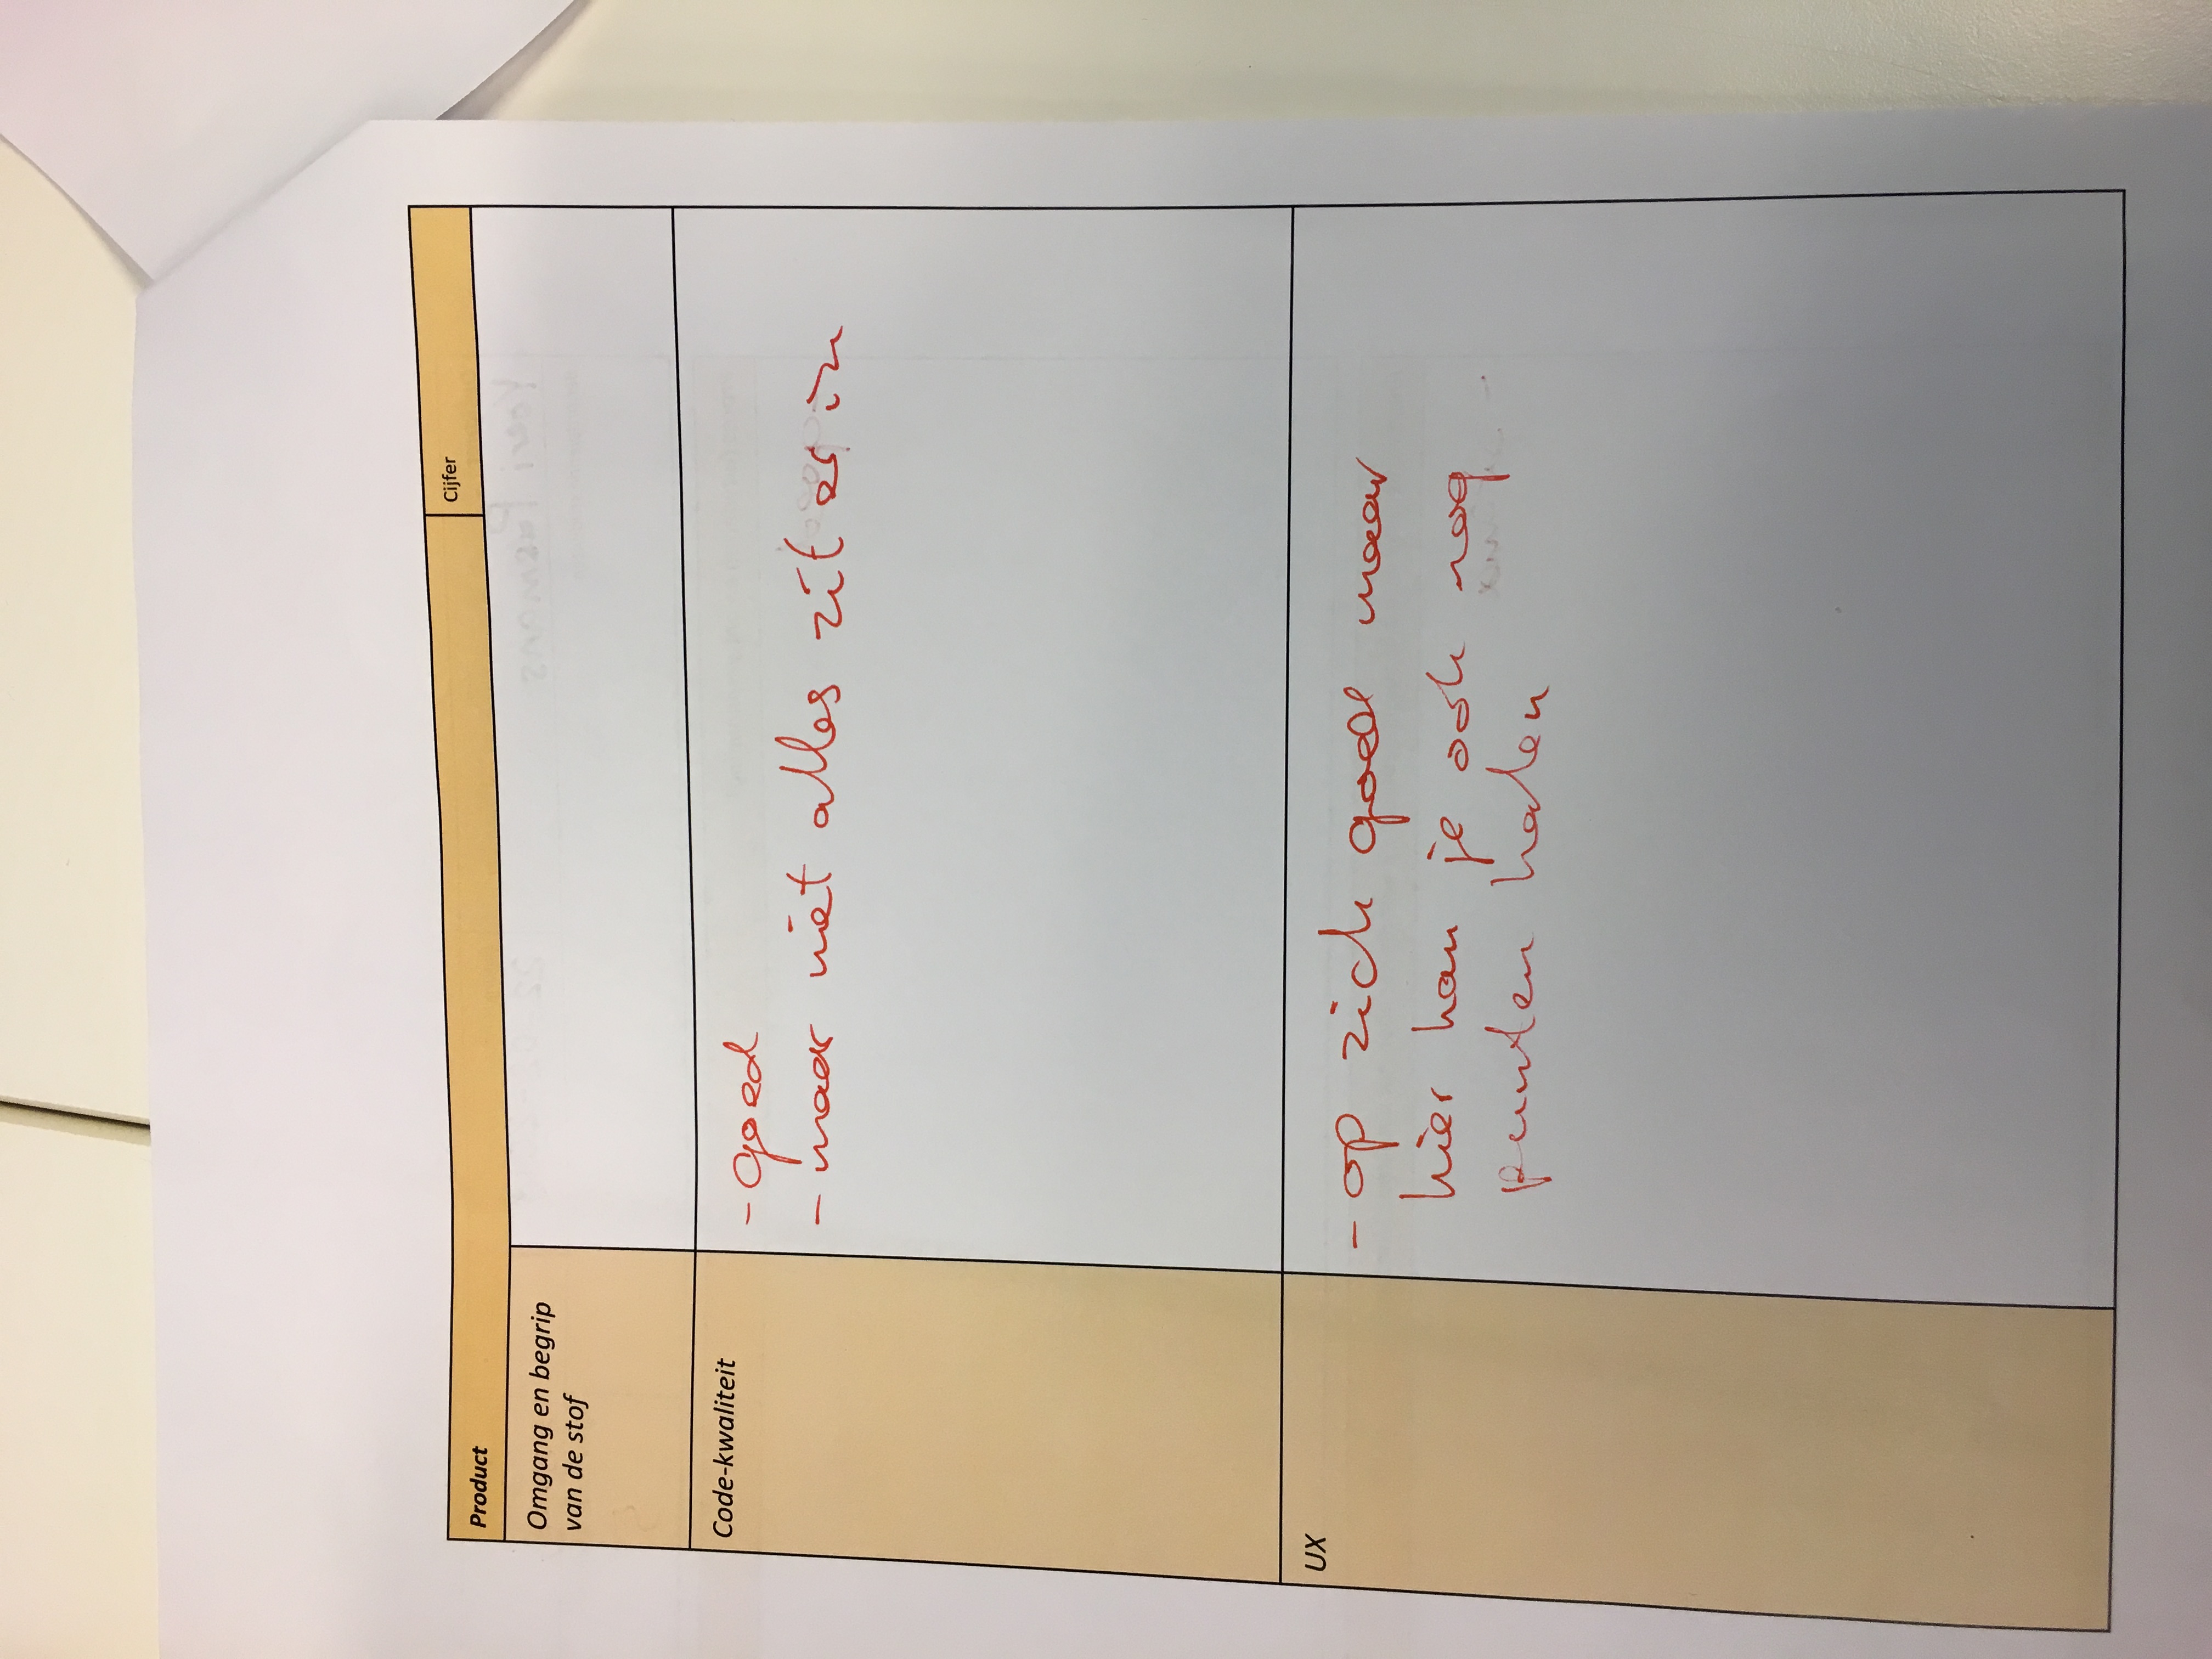 Product
Cijfer
Omgang en begrip
van de stof
Code-kwaliteit
- goed
- maar niet alles zit er in
UX
- op zich goed maar
hier kan je ook nog
punten halen